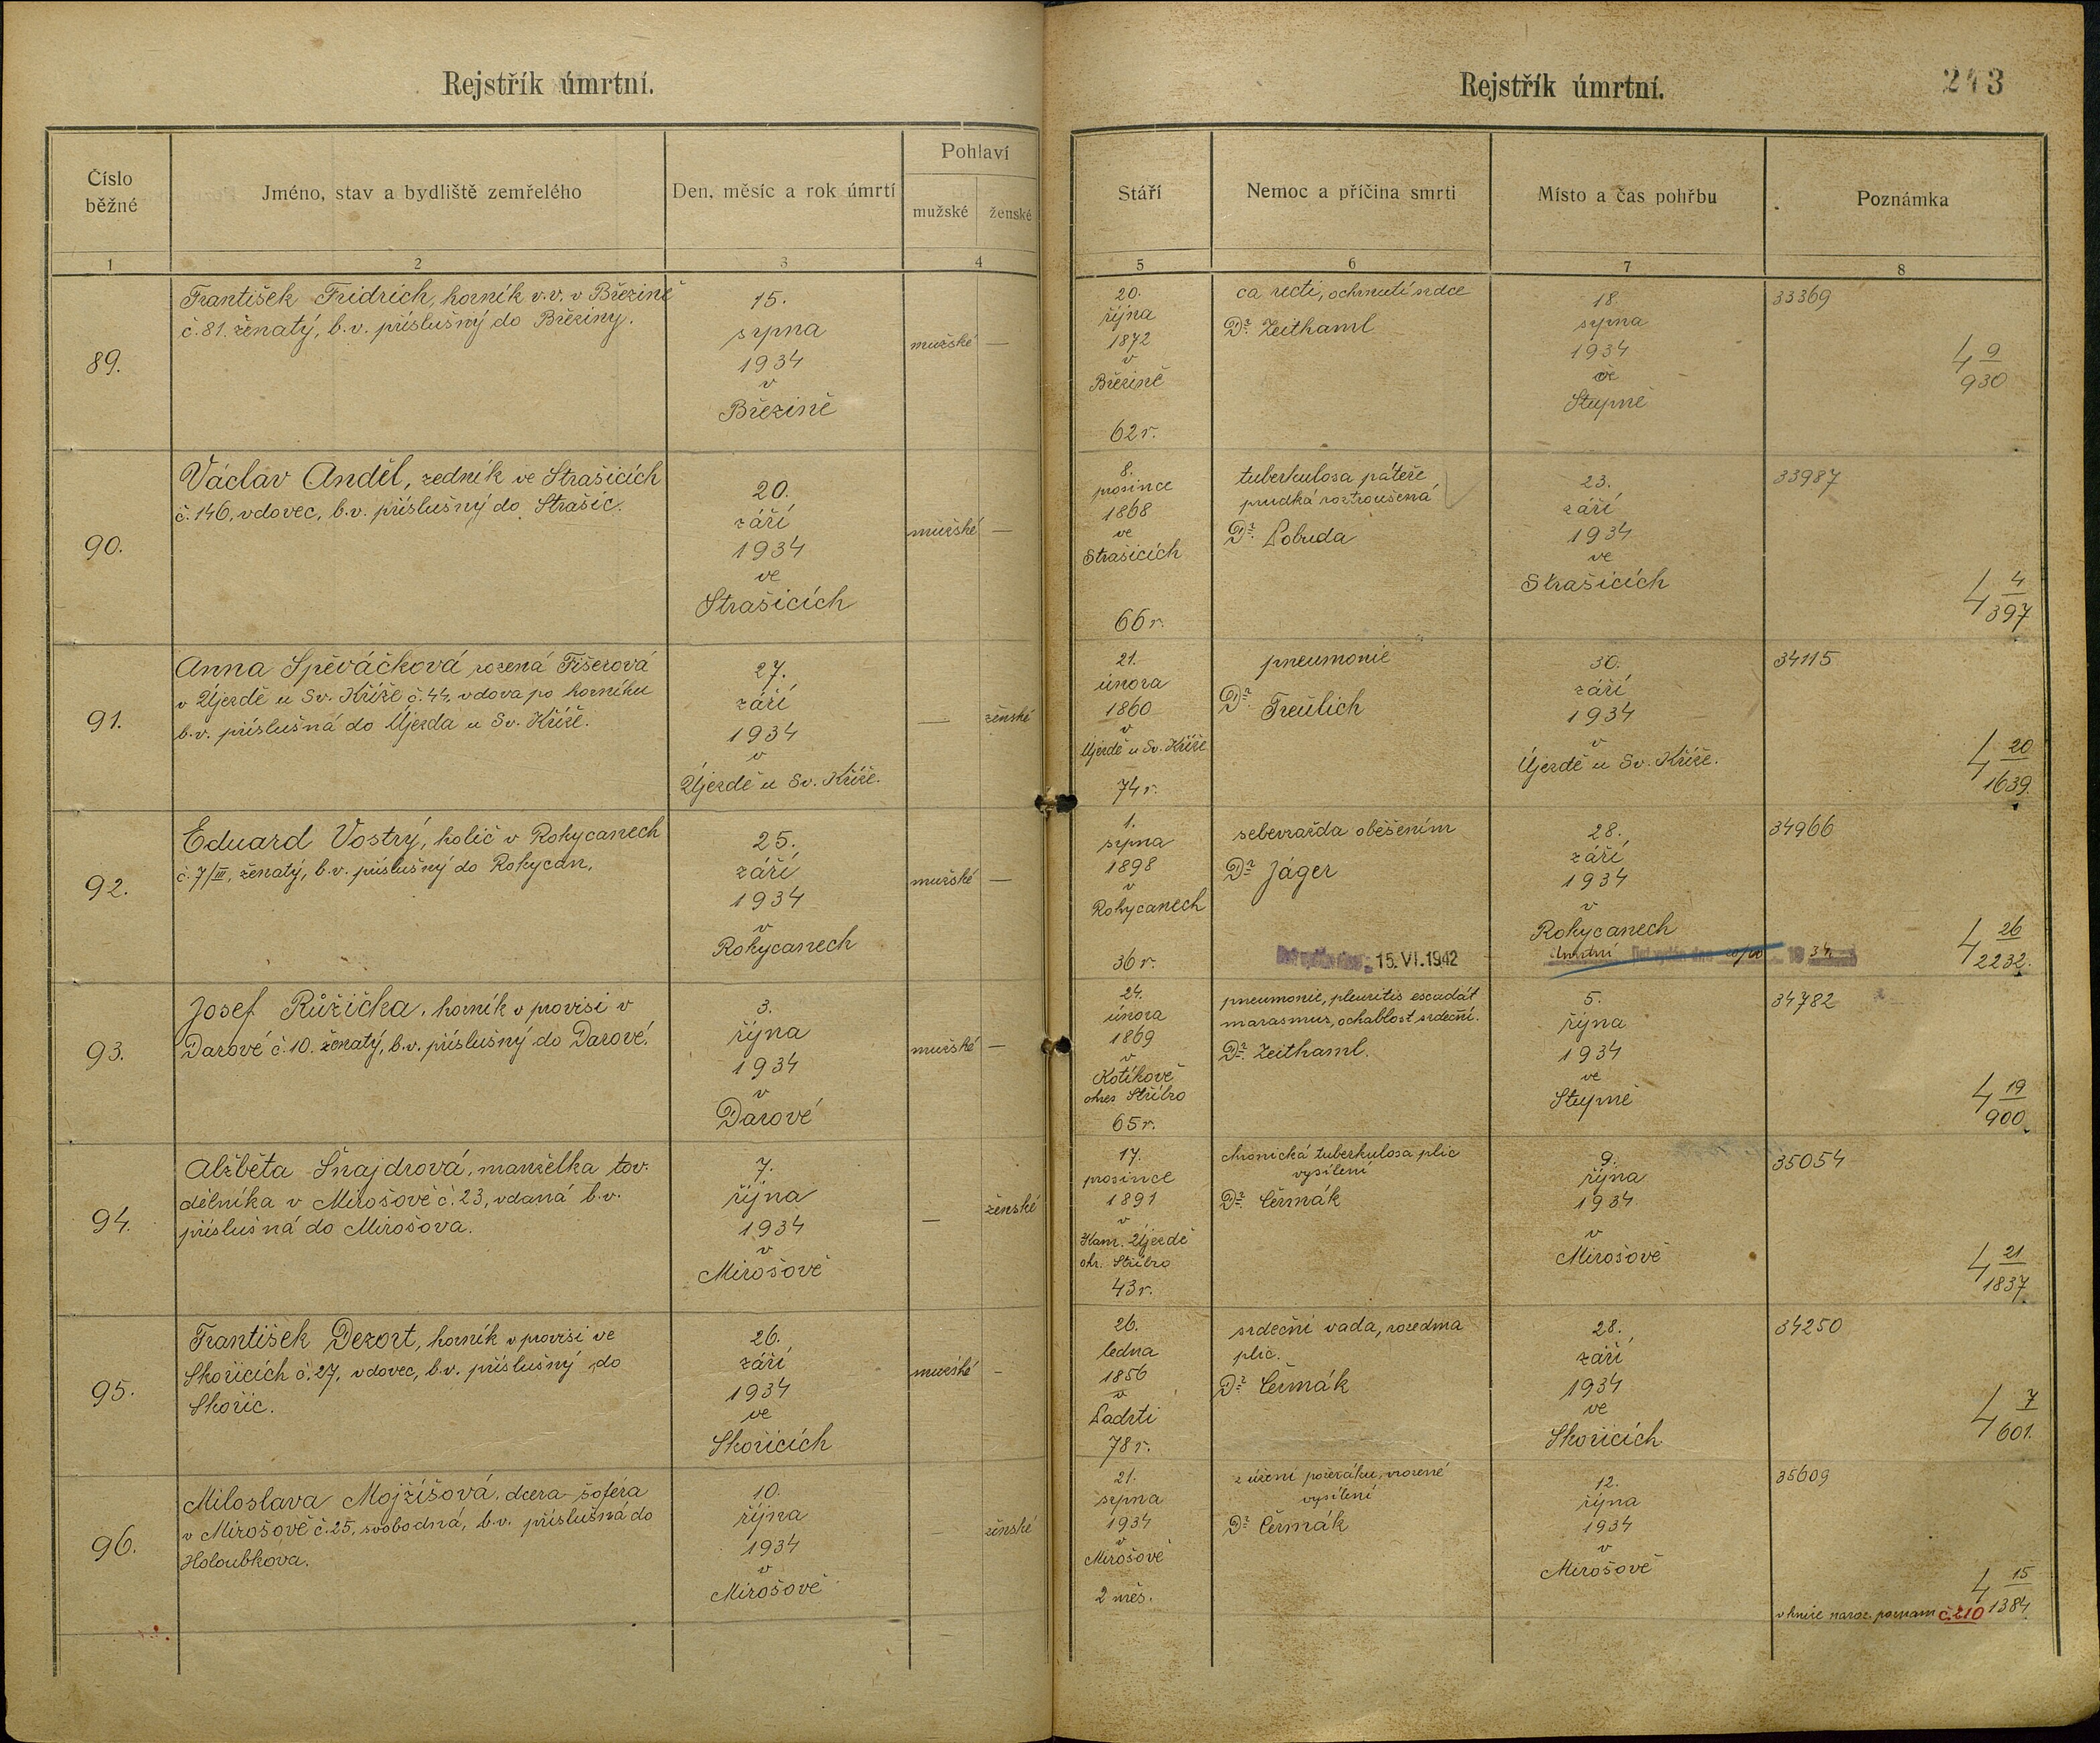 Rejstřík úmrtní.
Číslo běžné
Jméno, stav a bydliště zemřelého
Den, měsíc a rok úmrtí
Pohlaví
mužské
ženské
1
2
3
4
89.
František Fridrich, horník v.v. v Březině
č.81. ženatý, b.v. příslušný do Březiny.
15.
srpna
1934
v
Březině
mužské
—
90.
Václav Anděl, zedník ve Strašicích
č.146, vdovec, b.v. příslušný do Strašic.
20.
září
1934
ve
Strašicích
mužské
—
91.
Anna Spěváčková rozená Fišerová
v Újezdě u Sv. Kříže č.44, vdova po horníku
b.v. příslušná do Újezda u Sv. Kříže.
27.
září
1934
v
Újezdě u Sv. Kříže.
—
ženské
92.
Eduard Vostrý, holič v Rokycanech
č.7/III, ženatý, b.v. příslušný do Rokycan,
25.
září
1934
v
Rokycanech
mužské
—
93.
Josef Růžička, horník v provisi v
Darové č.10. ženatý, b.v. příslušný do Darové.
3.
října
1934
v
Darové
mužské
—
94.
Alžběta Šnajdrová, manželka tov.
dělníka v Mirošově č.23, vdaná b.v.
příslušná do Mirošova.
7.
října
1934
v
Mirošově
—
ženské
95.
František Dezort, horník v provisi ve
Skořicích č.27, vdovec, b.v. příslušný do
Skořic.
26.
září
1934
ve
Skořicích
mužské
-
96.
Miloslava Mojžíšová, dcera šoféra
v Mirošově č.25, svobodná, b.v. příslušná do
Holoubkova.
10.
října
1934
v
Mirošově
—
ženské
Rejstřík úmrtní.
243
Stáří
Nemoc a příčina smrti
Místo a čas pohřbu
Poznámka
5
6
7
8
20.
října
1872
v
Březině
62 r.
ca recti, ochrnutí srdce
Dr. Zeithaml
18.
srpna
1934
ve
Stupně
33369
4 9
930
8.
prosince
1868
ve
Strašicích
66 r.
tuberkulosa páteře
prudká roztroušená
Dr. Lobuda
23.
září
1934
ve
Strašicích
33987
4 4
397
21.
února
1860
v
Újezdě u Sv. Kříže
74 r.
pneumonie
Dr. Treülich
30.
září
1934
v
Újezdě u Sv. Kříže.
34115
4 20
1639.
1.
srpna
1898
v
Rokycanech
36 r.
sebevražda oběšením
Dr. Jáger
15. VI. 1942
28.
září
1934
v
Rokycanech
úmrtní
34966
4 26
2232.
24.
února
1869
v
Kotíkově
okres Stříbro
65 r.
pneumonie, pleuritis escudát
marasmus, ochablost srdeční.
Dr. Zeithaml.
5.
října
1934
ve
Stupně
34782
4 19
900
17.
prosince
1891
v
Kam. Újezdě
okr. Stříbro
43 r.
chronická tuberkulosa plic
vysílení
Dr. Čermák
9.
října
1934
v
Mirošově
35054
4 21
1837
26.
ledna
1856
v
Padrti
78 r.
srdeční vada, rozedma
plic.
Dr. Čermák
28.
září
1934
ve
Skořicích
34250
4 7
601.
21.
srpna
1934
v
Mirošově
2 měs.
zúžení požeráku, vrozené
vysílení
Dr. Čermák
12.
října
1934
v
Mirošově
35609
4 15
1384
v knize naroz. poznam č.210